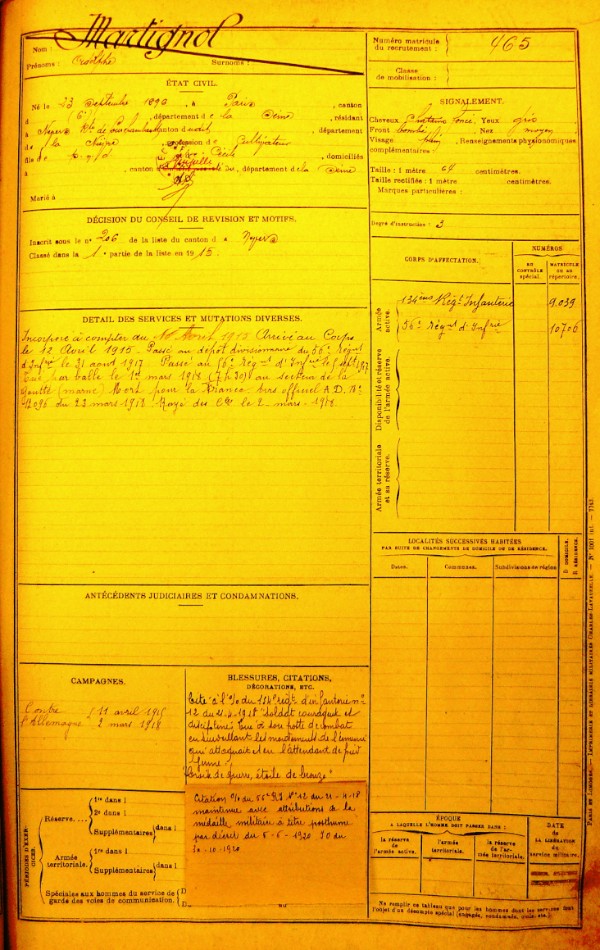 Martignol
Nom :
Prénoms : Adolphe Surnoms :
Numéro matricule
du recrutement : 465
Classe
de mobilisation :
ÉTAT CIVIL.
Né le 23 Septembre 1890, à Paris, canton
d 6e, département de la Seine, résidant
à Nevers, canton dudit, département
de la Nièvre, profession de Cultivateur
fils de et de Cécile, domiciliés
à, canton d, département de la Seine
Marié à
SIGNALEMENT.
Cheveux Châtain Foncé. Yeux gris
Front bombé Nez moyen
Visage plein, Renseignements physionomiques
complémentaires :
Taille : 1 mètre 64 centimètres.
Taille rectifiée : 1 mètre centimètres.
Marques particulières :
DÉCISION DU CONSEIL DE REVISION ET MOTIFS.
Inscrit sous le no 206 de la liste du canton d e Nevers
Classé dans la 1e partie de la liste en 1915.
Degré d'instruction : 3
CORPS D'AFFECTATION.
NUMÉROS
AU CONTRÔLE spécial.
MATRICULE OU AU répertoire.
Armée active.
134ème Régt Infanterie 9.039
56e Régmt d'Infrie 10706
Disponibilité et réserve de l'armée active.
Armée territoriale et sa réserve.
DÉTAIL DES SERVICES ET MUTATIONS DIVERSES.
Incorporé à compter du Avril 1915 Arrivé au Corps
le 12 Avril 1915. Passé au dépôt divisionnaire du 56e Régmt
d'Infrie le 31 août 1917 Passé au 56e Régmt d'Infrie le sept 1917
Tué par balle le 1er mars 1918 (7h30) au secteur de la
(marne) Mort pour la France. Avis officiel A.D. No
12096 du 22 mars 1918. Rayé des Cles le 2 mars 1918.
LOCALITÉS SUCCESSIVES HABITÉES
PAR SUITE DE CHANGEMENTS DE DOMICILE OU DE RÉSIDENCE.
Dates. Communes. Subdivisions de région
D DOMICILE.
R RÉSIDENCE.
ANTÉCÉDENTS JUDICIAIRES ET CONDAMNATIONS.
CAMPAGNES.
Contre 11 avril 1915
l'Allemagne 2 mars 1918
BLESSURES, CITATIONS,
DÉCORATIONS, ETC.
Cité à l'O/ du régt d'infanterie no
12 du 21-4-1918 "Soldat courageux et
discipliné. Tué à son poste de combat
en surveillant les mouvements de l'ennemi
qui attaquait et en l'attendant de pied
ferme."
Croix de Guerre, étoile de bronze
Citation O/ du 56e R.I. No 12 du 21-4-18
maintenue avec attributions de la
médaille militaire à titre posthume
par décret du 5-6-1920 JO du
10-10-1920
PÉRIODES D'EXERCICES.
Réserve....
1re dans l
2e dans l
Supplémentaires dans l
Armée territoriale.
1re dans l
Supplémentaires dans l
Spéciales aux hommes du service de garde des voies de communication.
D
D
ÉPOQUE
A LAQUELLE L'HOMME DOIT PASSER DANS :
la réserve de l'armée active.
l'armée territoriale.
la réserve de l'armée territoriale.
DATE
de LA LIBÉRATION du service militaire.
Ne remplir ce tableau que pour les hommes dont les services font
l'objet d'un décompte spécial (engagés, condamnés, etc.).
PARIS ET LIMOGES. — IMPRIMERIE ET LIBRAIRIE MILITAIRES CHARLES-LAVAUZELLE.